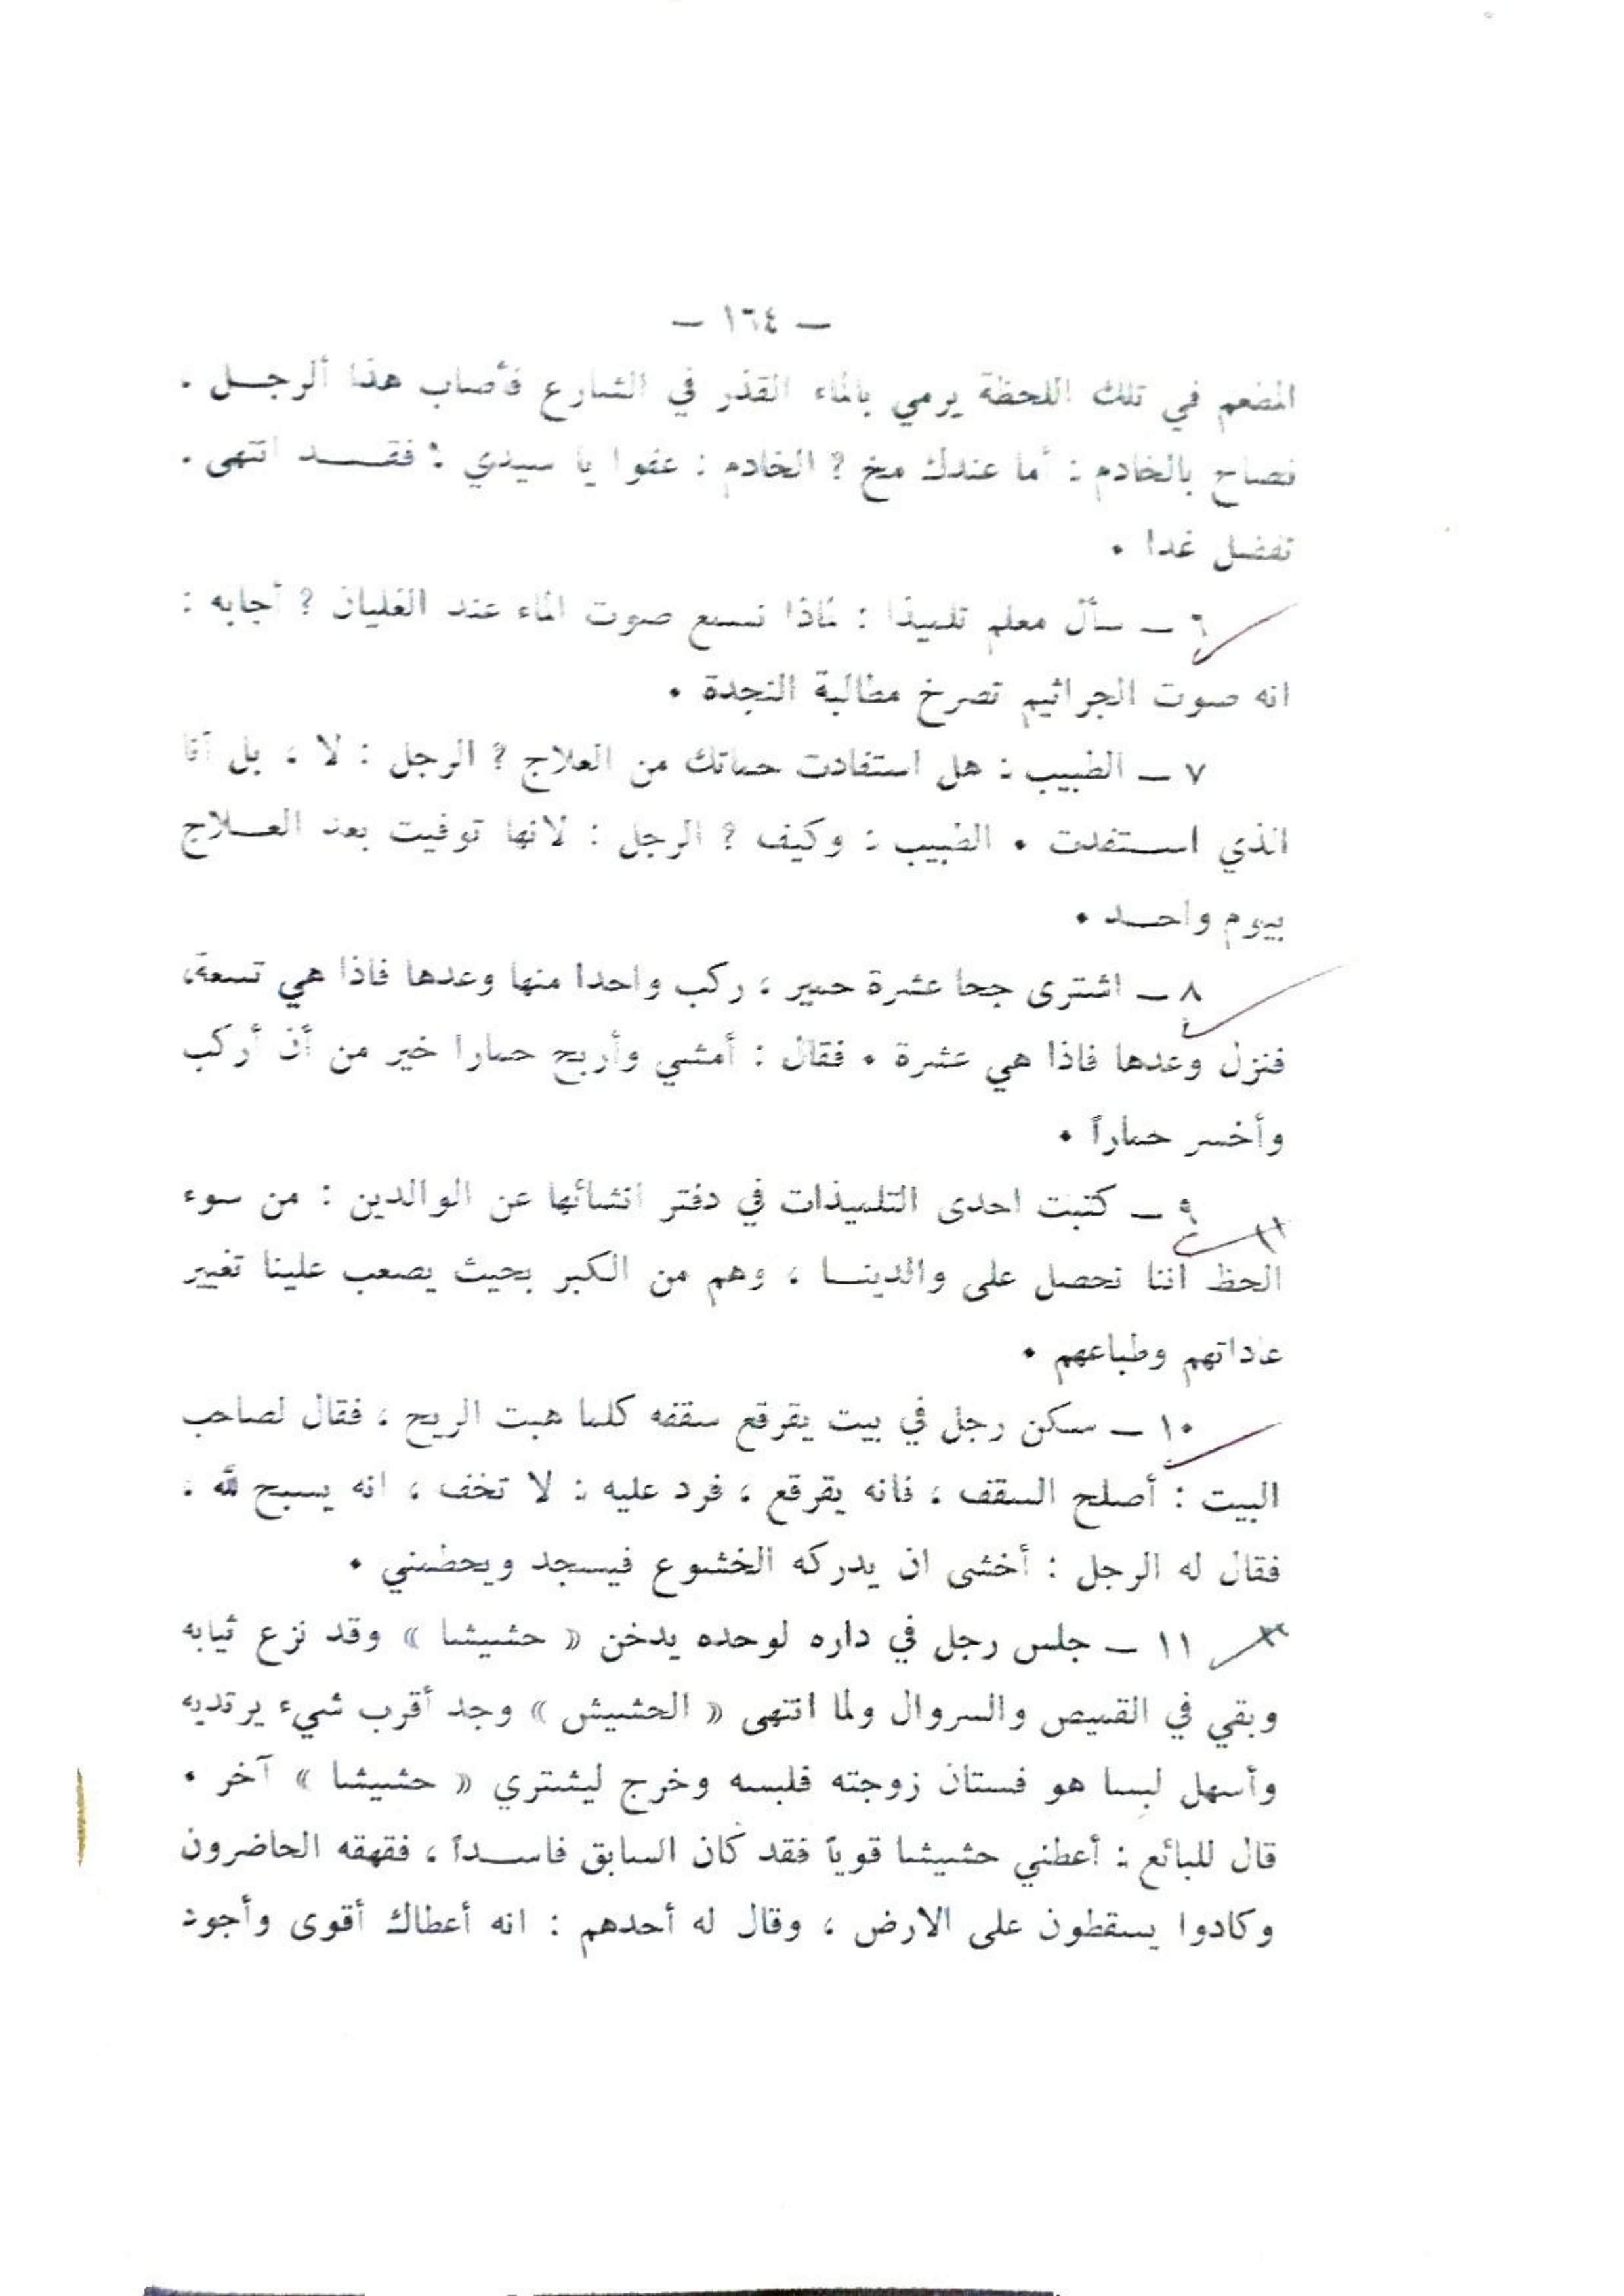 — ١٦٤ —
المطعم في تلك اللحظة يرمي بالماء القذر في الشارع فأصاب هذا الرجـــل .
فصاح بالخادم : أما عندك مخ ? الخادم : عفوا يا سيدي : فقـــد انتهى .
تفضل غدا .
٦ — سأل معلم تلميذا : لماذا نسمع صوت الماء عند الغليان ? أجابه :
انه صوت الجراثيم تصرخ مطالبة النجدة .
٧ — الطبيب : هل استفادت حماتك من العلاج ? الرجل : لا ، بل أنا
الذي استفدت . الطبيب : وكيف ? الرجل : لانها توفيت بعد العـــلاج
بيوم واحـــد .
٨ — اشترى جحا عشرة حمير ، ركب واحدا منها وعدها فاذا هي تسعة،
فنزل وعدها فاذا هي عشرة . فقال : أمشي وأربح حمارا خير من أن أركب
وأخسر حماراً .
٩ — كتبت احدى التلميذات في دفتر انشائها عن الوالدين : من سوء
الحظ اننا نحصل على والدينـــا ، وهم من الكبر بحيث يصعب علينا تغيير
عاداتهم وطباعهم .
١٠ — سكن رجل في بيت يقرقع سقفه كلما هبت الريح ، فقال لصاحب
البيت : أصلح السقف ، فانه يقرقع ، فرد عليه : لا تخف ، انه يسبح لله ،
فقال له الرجل : أخشى ان يدركه الخشوع فيسجد ويحطمني .
١١ — جلس رجل في داره لوحده يدخن « حشيشا » وقد نزع ثيابه
وبقي في القميص والسروال ولما انتهى « الحشيش » وجد أقرب شيء يرتديه
وأسهل لبسا هو فستان زوجته فلبسه وخرج ليشتري « حشيشا » آخر .
قال للبائع : أعطني حشيشا قوياً فقد كان السابق فاســـداً ، فقهقه الحاضرون
وكادوا يسقطون على الارض ، وقال له أحدهم : انه أعطاك أقوى وأجود